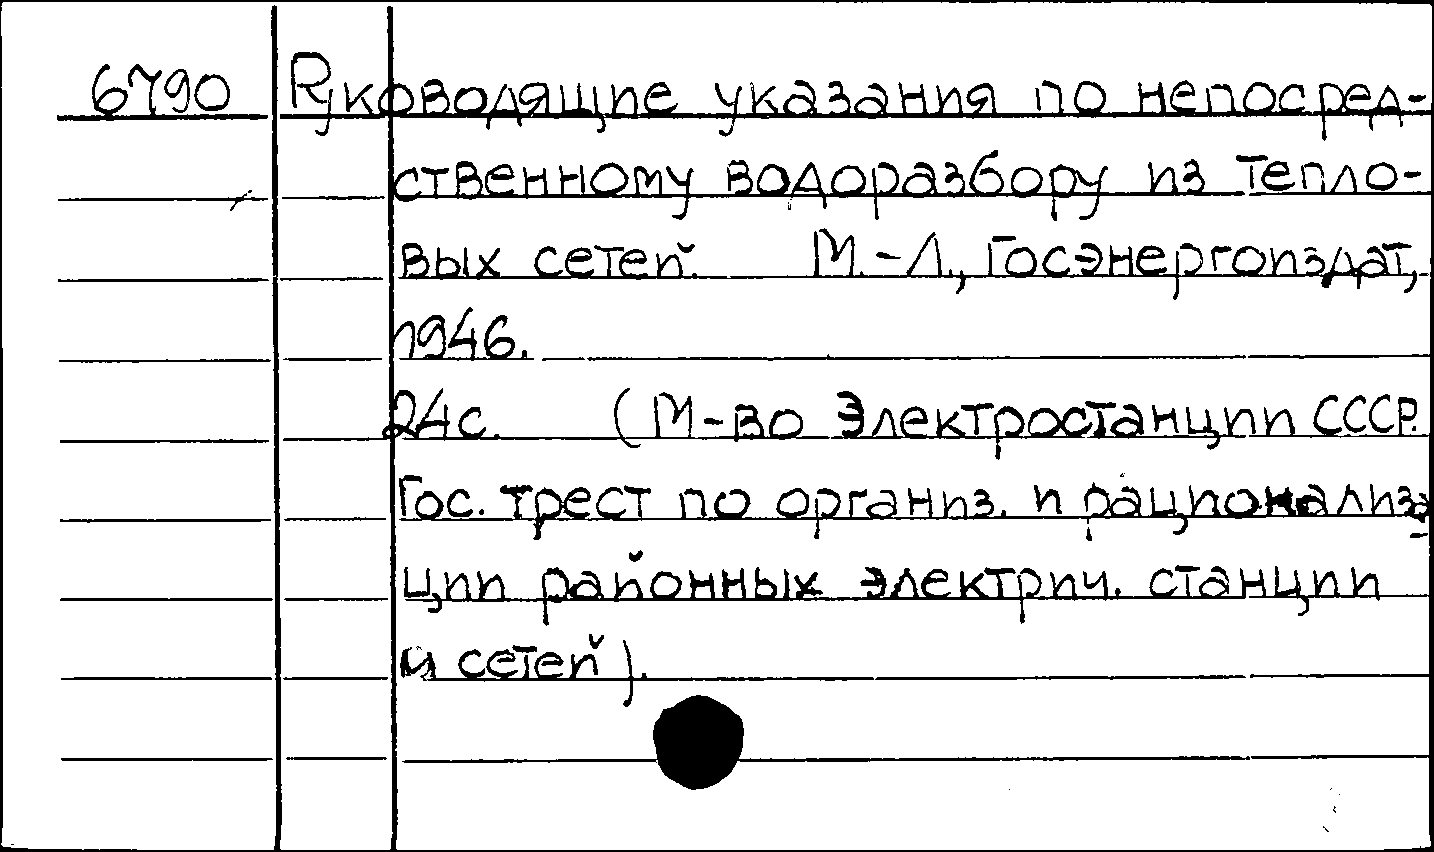 6790 Руководящие указания по непосред-
ственному водоразбору из тепло-
вых сетей. М.-Л., Госэнергоиздат,
1946.
24с. (М-во Электростанции СССР.
Гос. трест по организ. и рационализа
ции районных электрич. станции
и сетей).